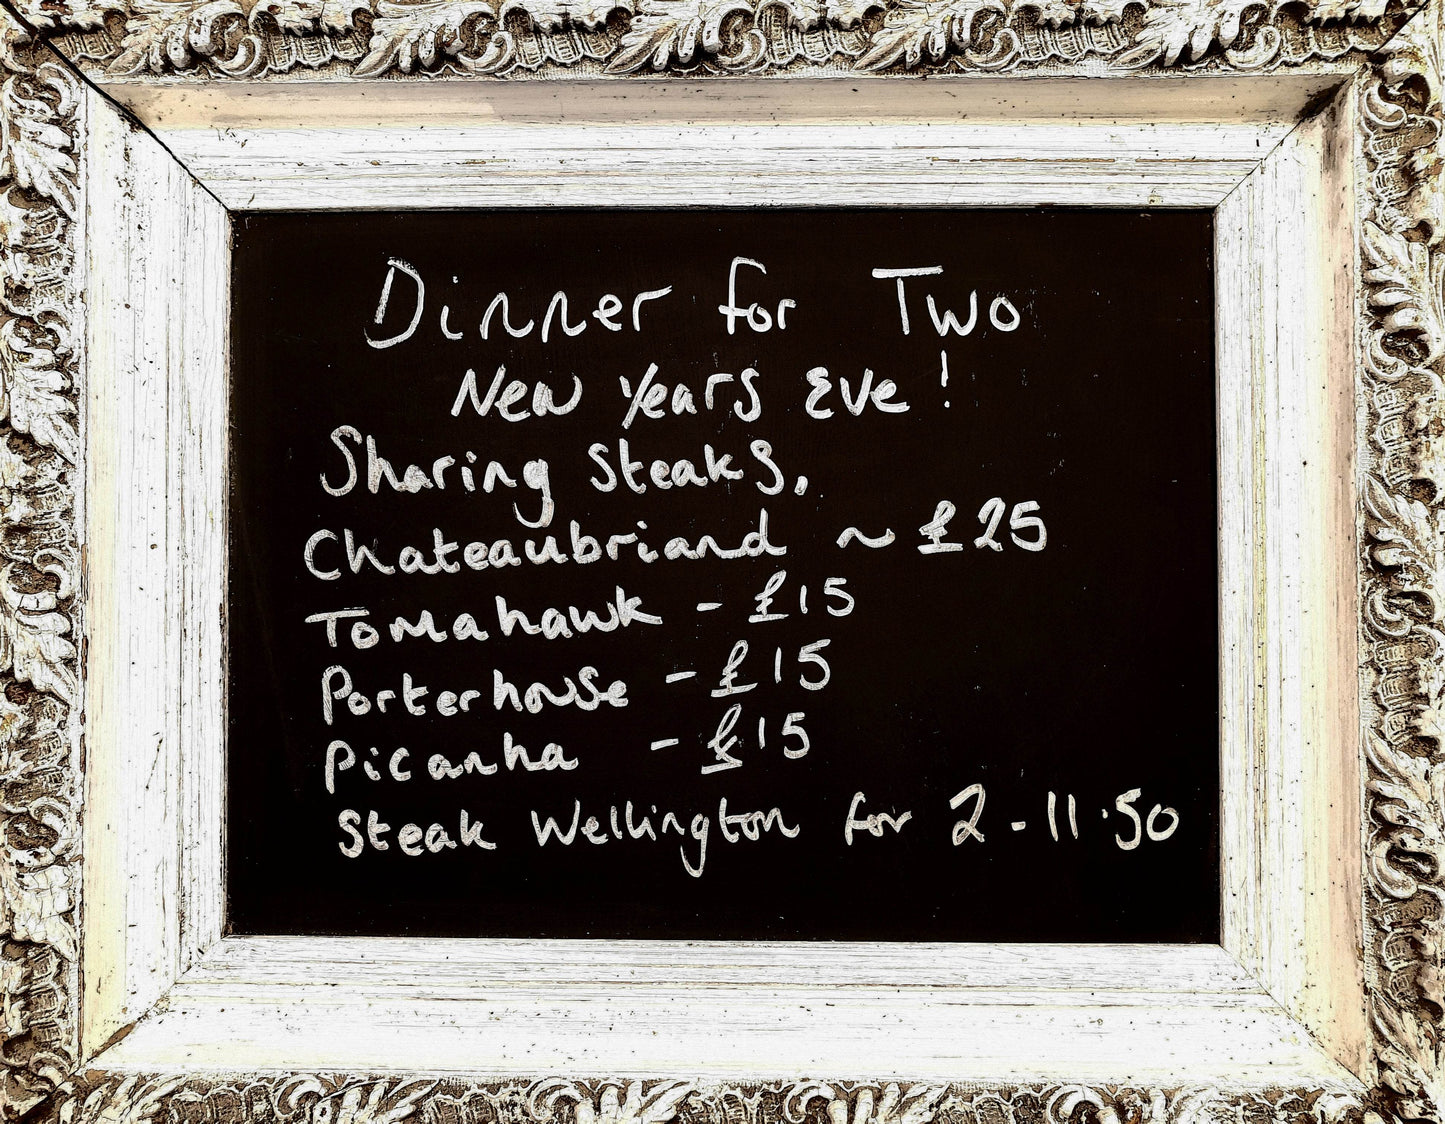 Dinner for Two
New Years Eve!
Sharing Steaks,
Chateaubriand ~ £25
Tomahawk - £15
Porterhouse - £15
Picanha - £15
Steak Wellington for 2 - 11.50